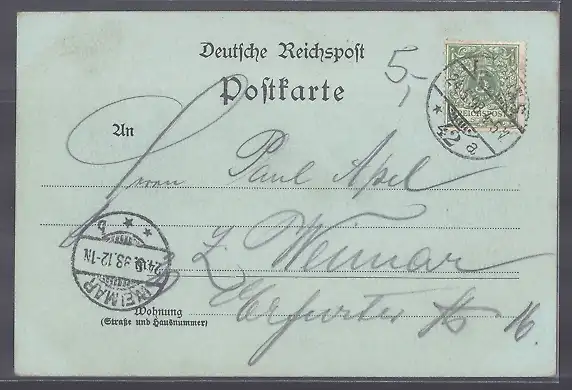 Deutsche Reichspost
Postkarte
5,-
REICHSPOST
42 a.
An
Herrn Paul Apel
Weimar
WEIMAR
24. 98. 12-1N.
b
Wohnung
(Straße und Hausnummer)
Erfurter Str 16.